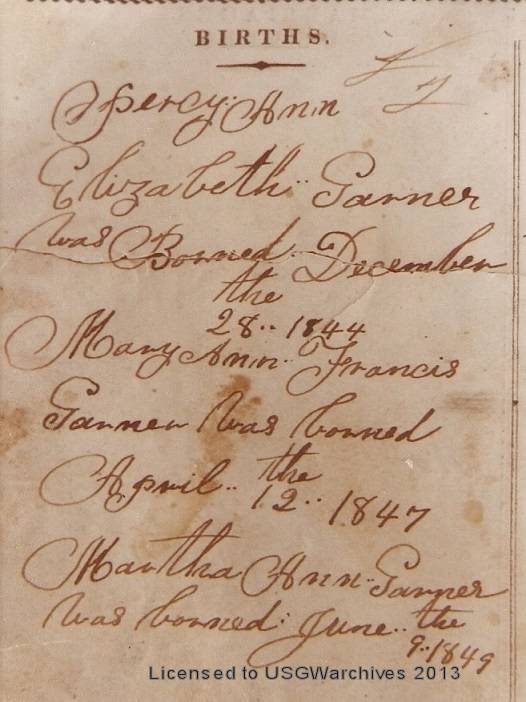 BIRTHS.
Spercy Ann
Elizabeth Garner
was Borned December
the
28 1844
Mary Ann Francis
Garner was borned
April the
12 1847
Martha Ann Garner
was borned June the
9 1849
Licensed to USGWarchives 2013